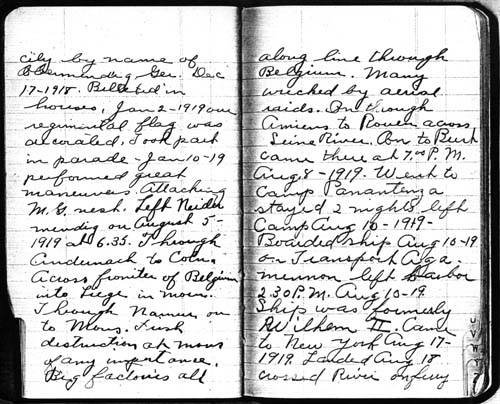 city by name of
Ger. Dec
17-1918. Billeted in
houses, Jan 2-1919 our
regimental flag was
decorated. Took part
in parade - Jan 10-19
performed great
maneuvers attacking
M.G. nest. Left Neider
mendig on August 5-
1919 at 6.35. Through
Andernach to Coln.
Across frontier of Belgium
into Liege in morn.
Through Namur on
to Mons. First
destruction at mons
of any importance.
Big factories all
along line through
Belgium. Many
wrecked by aerial
raids. On through
Amiens to Rouen across
Seine River. On to Brest
came there at 7.00 P.M.
Aug. 8-1919. Went to
Camp Panantenza
stayed 2 nights left
Camp Aug 10-1919-
Boarded ship Aug 10-19
on Transport Aga-
memnon left Harbor
2.30 P.M. Aug 10-19
Ship was formerly
Wilhem II. Came
to New York Aug 17-
1919. Landed Aug 18
crossed River on ferry